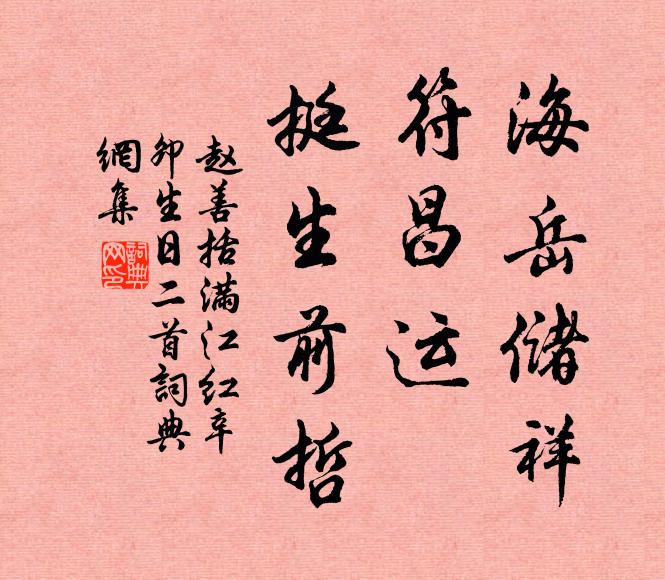 海岳储祥
符昌运
挺生前哲
赵善括满江红辛
卯生日二首詞典
網集
詞典
网印